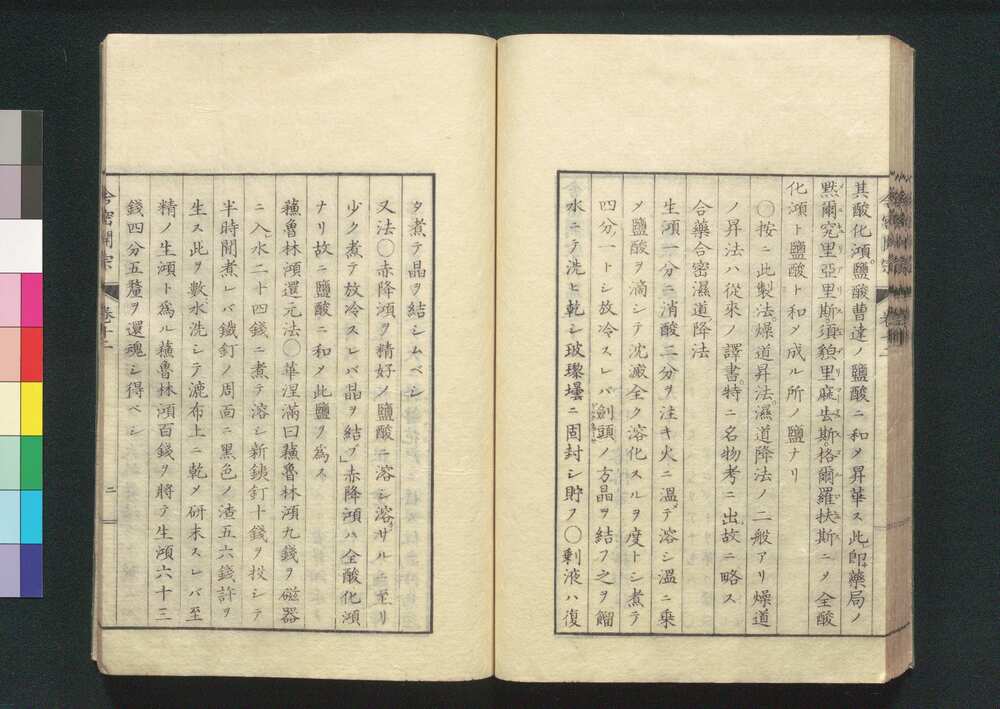 其酸化澒。鹽酸曹達ノ鹽酸ニ和メ昇華ス此即藥局ノ
黙爾究里亞里斯須貌里麻去斯。格爾羅扶斯ニヲ全酸
化澒ト鹽酸ト和メ成ル所ノ鹽ナリ
〇按ニ此製法燥道昇法。濕道降法ノ二般アリ燥道
ノ昇法ハ從來ノ譯書特ニ名物考ニ出故ニ略ス
合藥合密濕道降法
生澒一分ニ消酸二分ヲ注キ火ニ温テ溶シ温ニ乗
メ鹽酸ヲ滴シテ沈澱全ク溶化スルヲ度トシ煮テ
四分一トシ放冷スレバ劍頭ノ方晶ヲ結フ之ヲ餾
水ニテ洗ヒ乾シ玻瓈壜ニ固封シ貯フ〇剩液ハ復
タ煮テ晶ヲ結シムベシ
又法〇赤降澒ヲ精好ノ鹽酸ニ溶シ溶サルニ至リ
少ク煮テ放冷スレバ晶ヲ結ブ」赤降澒ハ全酸化澒
ナリ故ニ鹽酸ニ和メ此鹽ヲ為ス
蘓魯林澒還元法〇華涅満曰蘓魯林澒九錢ヲ磁器
ニ入水二十四錢ニ煮テ溶シ新鐵釘十錢ヲ投シテ
半時間煮レバ鐵釘ノ周面ニ黒色ノ渣五六錢許ヲ
生ス此ヲ數水洗シテ漉布上ニ乾メ研末スレバ至
精ノ生澒ト為ル蘓魯林澒百錢ヲ將テ生澒六十三
錢四分五釐ヲ還魂シ得ベシ
舎密開宗 卷十二 二